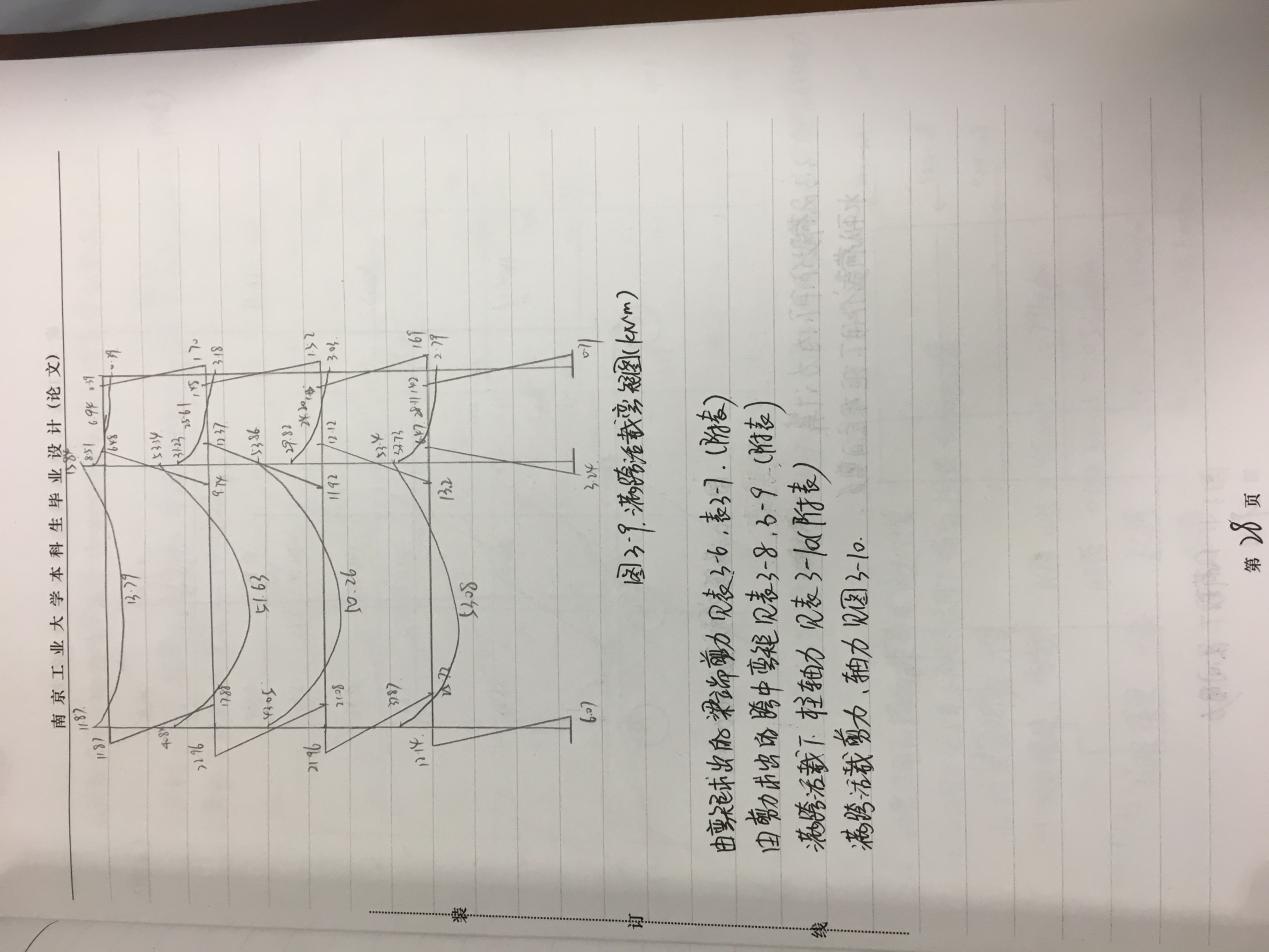 南京工业大学本科生毕业设计（论文）
15.84
11.87 8.51 6.94 0.79 0.79
11.87 13.79 6.48
53.14 31.23 28.61 1.70
3.18
22.96 17.88 51.63 9.74 12.37
43.05 53.86 29.82 24.20 1.52
3.03
21.96 21.08 50.26 11.92 12.12
37.87 53.4 32.73 28.11 1.69
2.79
12.14 53.08 13.2 6.47
6.07 3.24 0.71
图3-9.满跨活载弯矩图(kN·m)
由弯矩求出的梁端剪力见表3-6,表3-7.(附表)
由剪力求出的跨中弯矩见表3-8,3-9.(附表)
满跨活载下.柱轴力见表3-10(附表)
满跨活载剪力、轴力见图3-10.
装
订
线
第28页